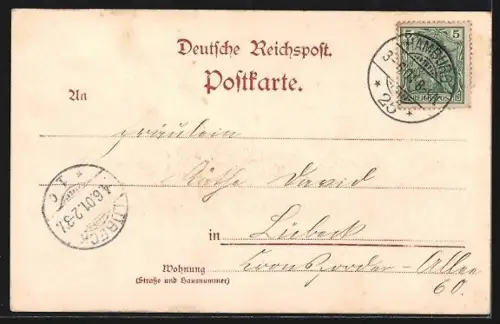 Deutsche Reichspost.
Postkarte.
5 5
HAMBURG
* 25 *
An
Fräulein
Käthe David
in Lübeck
LÜBECK
4.6.01.2-3
* 1 c
Wohnung
(Straße und Hausnummer)
Kronsforder-Allee
60.